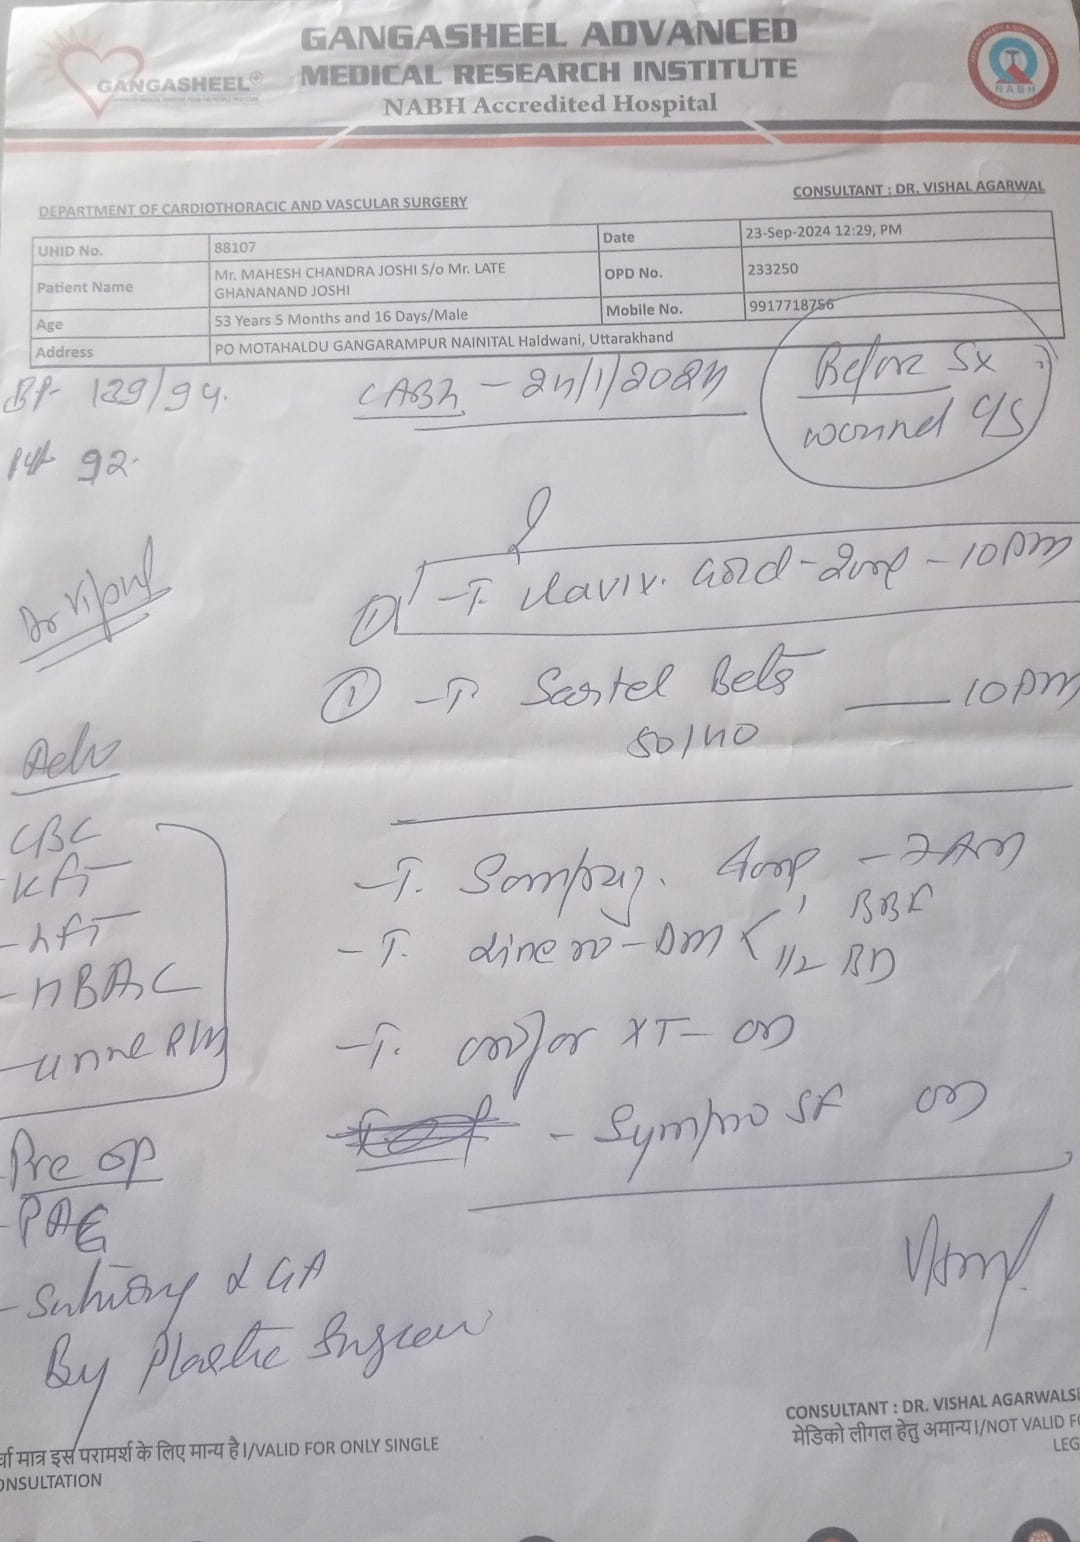 GANGASHEEL ADVANCED
MEDICAL RESEARCH INSTITUTE
NABH Accredited Hospital
GANGASHEEL®
NABH
DEPARTMENT OF CARDIOTHORACIC AND VASCULAR SURGERY
CONSULTANT : DR. VISHAL AGARWAL
UHID No. 88107 Date 23-Sep-2024 12:29, PM
Patient Name Mr. MAHESH CHANDRA JOSHI S/o Mr. LATE GHANANAND JOSHI OPD No. 233250
Age 53 Years 5 Months and 16 Days/Male Mobile No. 9917718756
Address PO MOTAHALDU GANGARAMPUR NAINITAL Haldwani, Uttarakhand
BP- 139/94.
92.
Before Sx
wound c/s
Dr Vipul
Gold - 10 PM
① - T. Beta 10 PM
50/40
Adv
CBC
KFT
- LFT
- HBA1C
- urine R/M
- T. - 7 AM
BBF
- T. - DM < 1/2 BD
- T. XT - OD
- SF OD
Pre op
- PAC
- Suturing GA
By Plastic Surgeon
CONSULTANT : DR. VISHAL AGARWALSI
मेडिको लीगल हेतु अमान्य।/NOT VALID FO
LEG
र्चा मात्र इस परामर्श के लिए मान्य है।/VALID FOR ONLY SINGLE
ONSULTATION